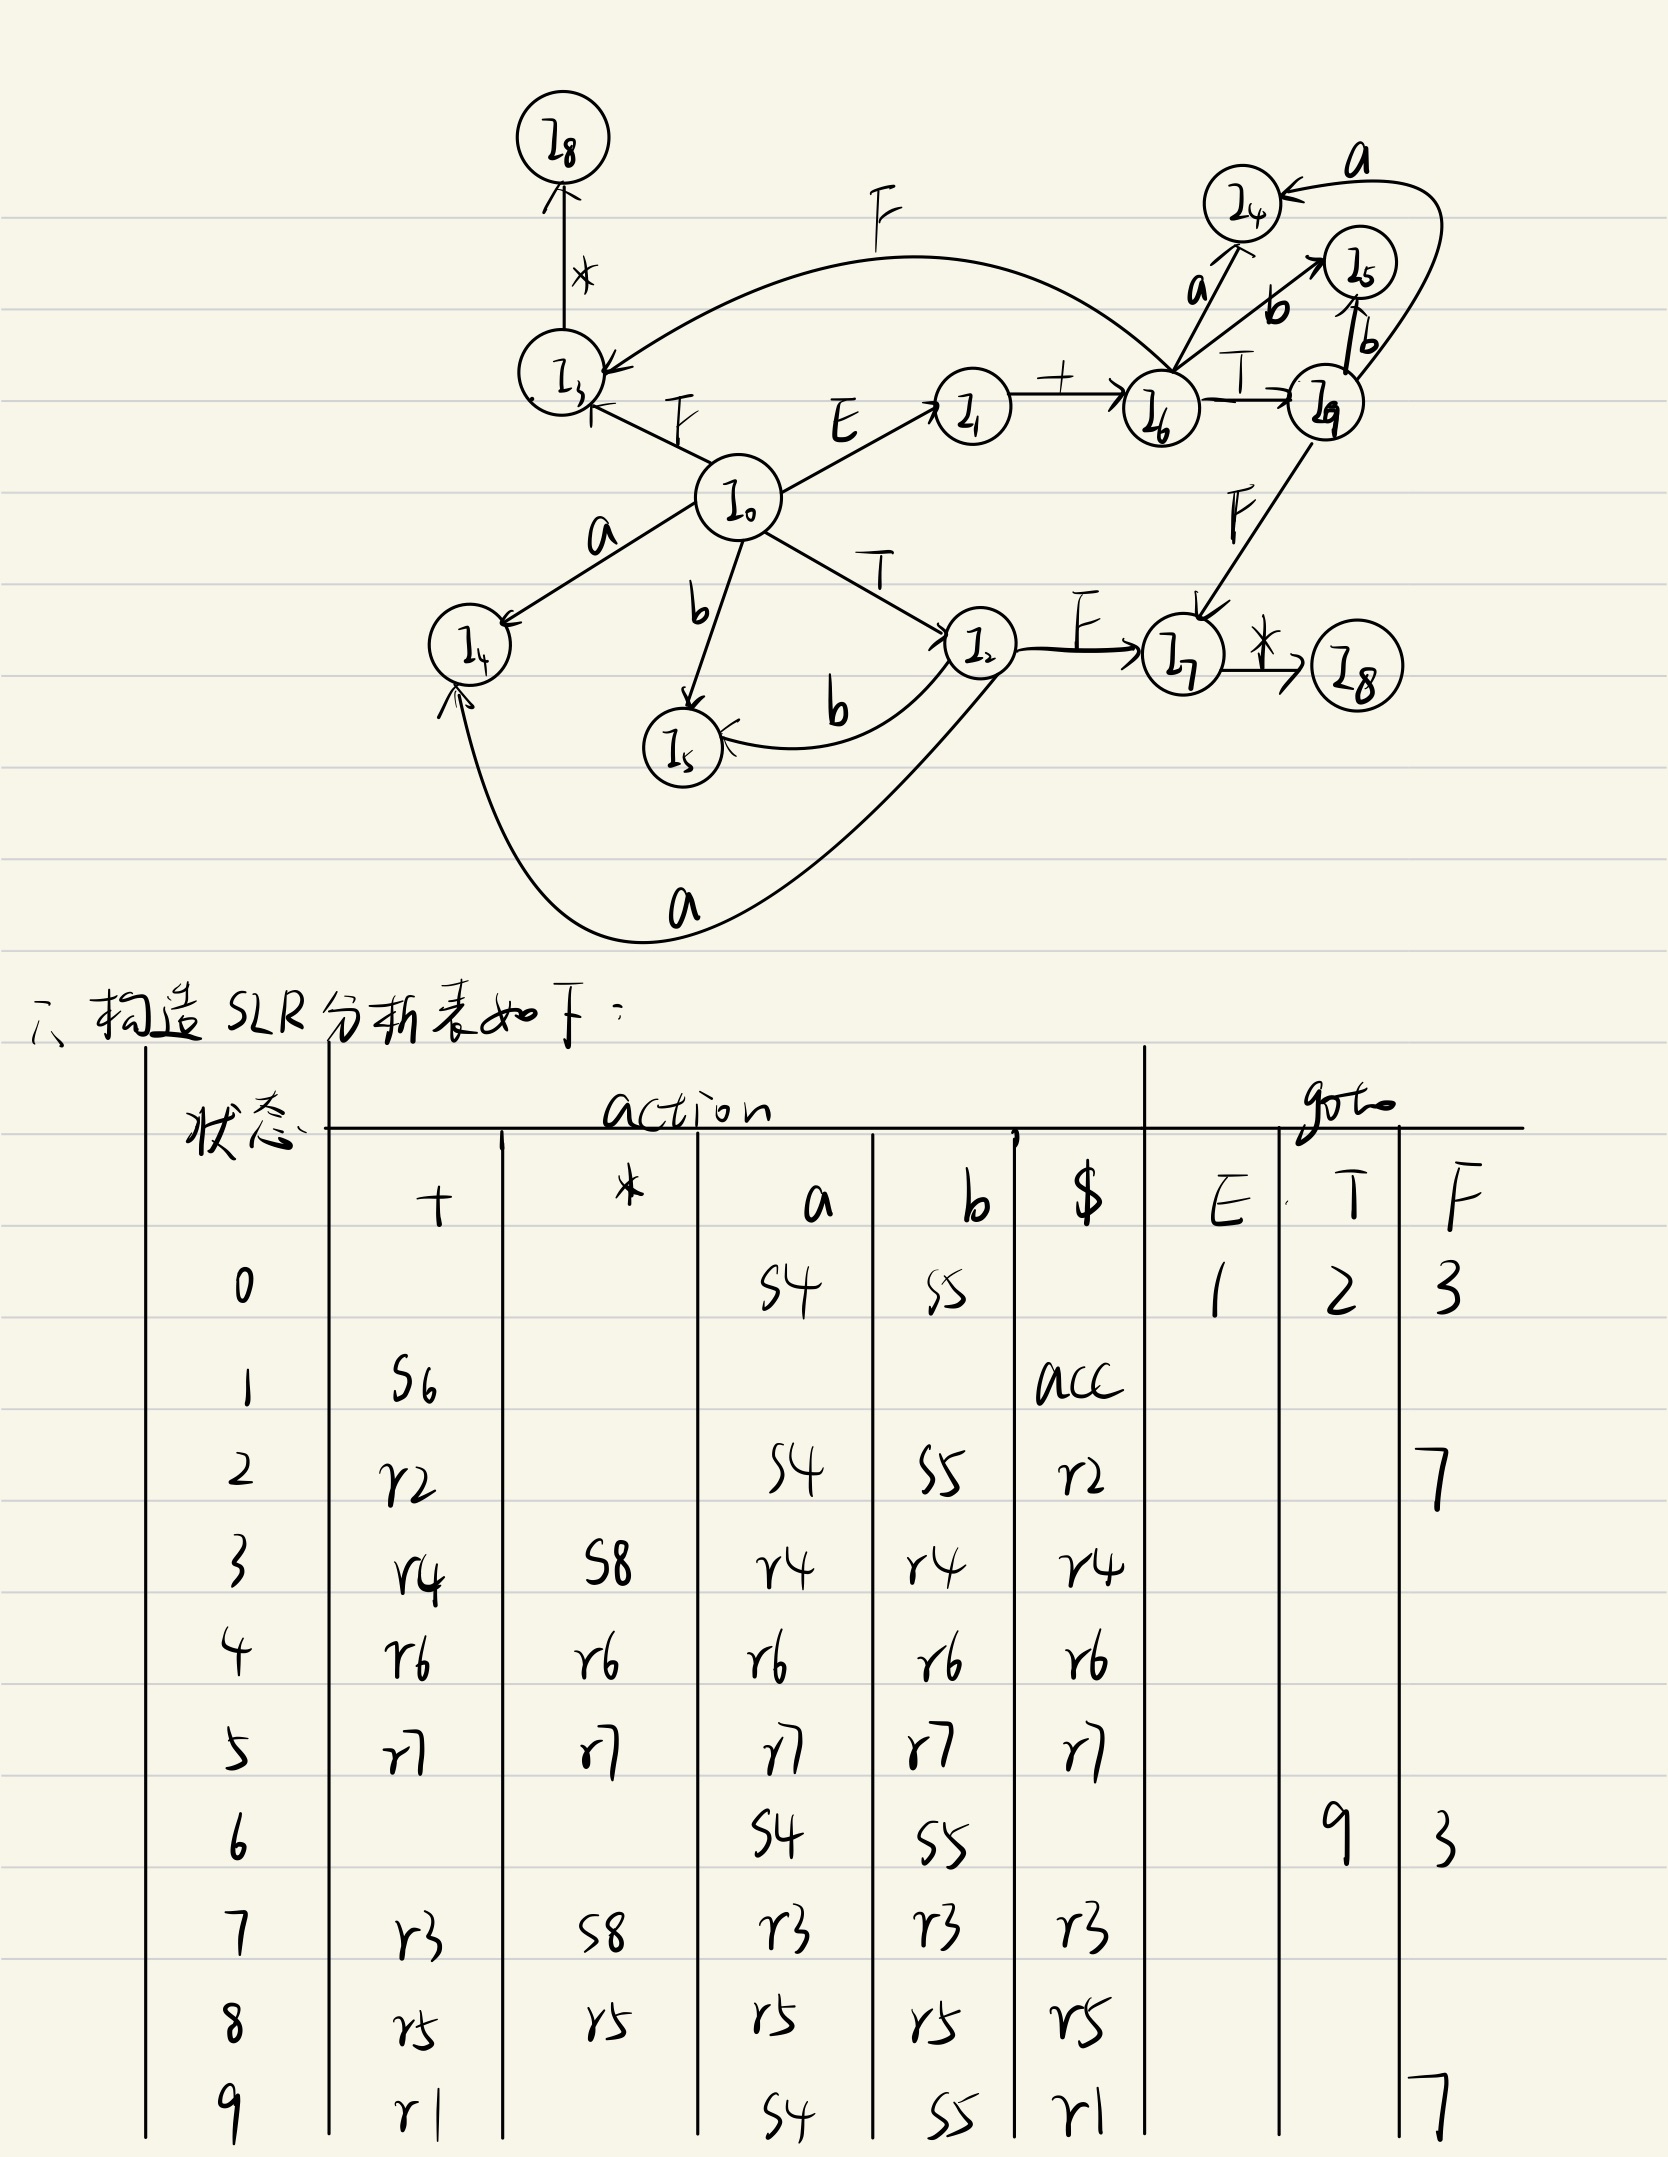 I8
*
F
I4
a
I5
a
b
b
I3
F
E
I1
+
I6
T
I9
I0
a
b
T
F
I4
I2
F
I7
*
I8
b
I5
a
∴ 构造 SLR 分析表如下:
状态 action goto
+ * a b $ E T F
0 S4 S5 1 2 3
1 S6 acc
2 r2 S4 S5 r2 7
3 r4 S8 r4 r4 r4
4 r6 r6 r6 r6 r6
5 r7 r7 r7 r7 r7
6 S4 S5 9 3
7 r3 S8 r3 r3 r3
8 r5 r5 r5 r5 r5
9 r1 S4 S5 r1 7